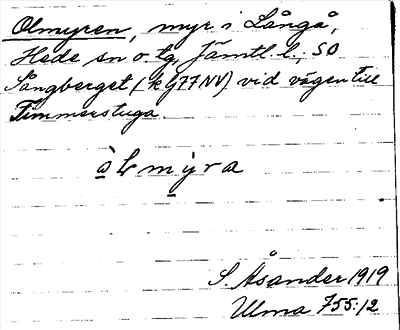 Olmyren, myr i Långå,
Hede sn o. tg, Jämtl. l., SO
Sångberget (k g77NV) vid vägen till
Timmerstuga.
àlmyra
S. Åsander 1919
Ulma 755:12